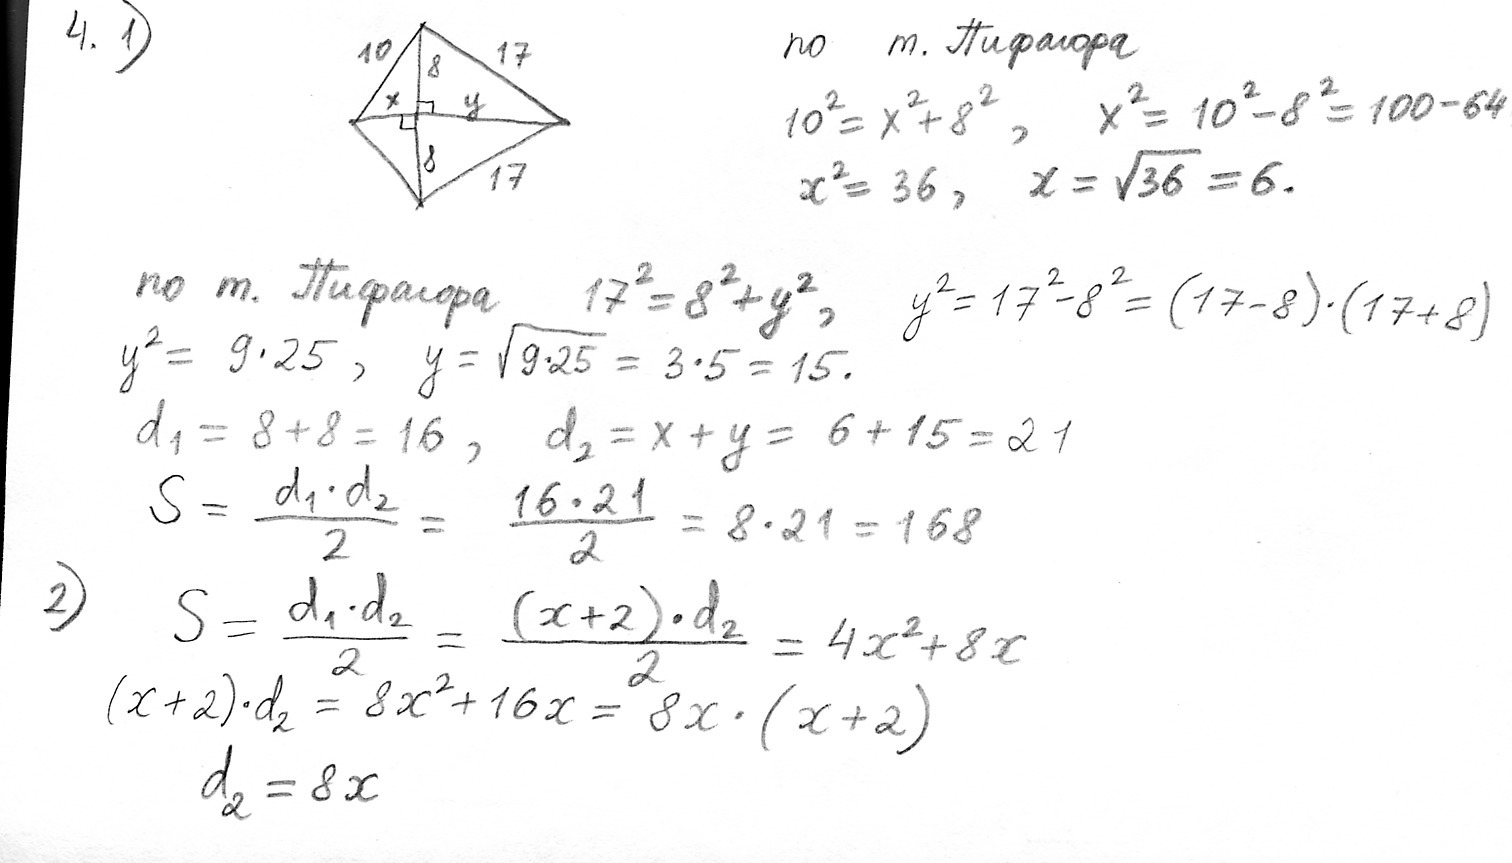 4. 1)
10 8 17
x y
8 17
по т. Пифагора
10² = x² + 8², x² = 10² - 8² = 100 - 64
x² = 36, x = √36 = 6.
по т. Пифагора 17² = 8² + y², y² = 17² - 8² = (17 - 8)·(17 + 8)
y² = 9·25, y = √9·25 = 3·5 = 15.
d₁ = 8 + 8 = 16, d₂ = x + y = 6 + 15 = 21
S = d₁·d₂/2 = 16·21/2 = 8·21 = 168
2) S = d₁·d₂/2 = (x+2)·d₂/2 = 4x² + 8x
(x+2)·d₂ = 8x² + 16x = 8x·(x+2)
d₂ = 8x